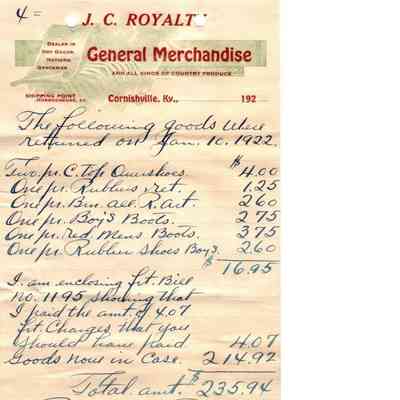 4=
J. C. ROYALTY
DEALER IN
DRY GOODS
NOTIONS
GROCERIES
General Merchandise
AND ALL KINDS OF COUNTRY PRODUCE
SHIPPING POINT
HARRODSBURG, KY.
Cornishville, Ky., 192
The following goods were
returned on Jan. 10, 1922.
Two pr. C. Top Overshoes. $4.00
One pr. Rubbers ret. 1.25
One pr. Bro. all R. art. 2 60
One pr. Boy's Boots. 2 75
One pr. red Mens Boots. 3 75
One pr. Rubber Shoes Boys. 2.60
$16.95
I am enclosing frt. Bill
no. 1195 showing that
I paid the amt. of 4.07
frt. Charges, that you
should have paid 4.07
Goods now in Case. 214.92
Total amt. $235.94